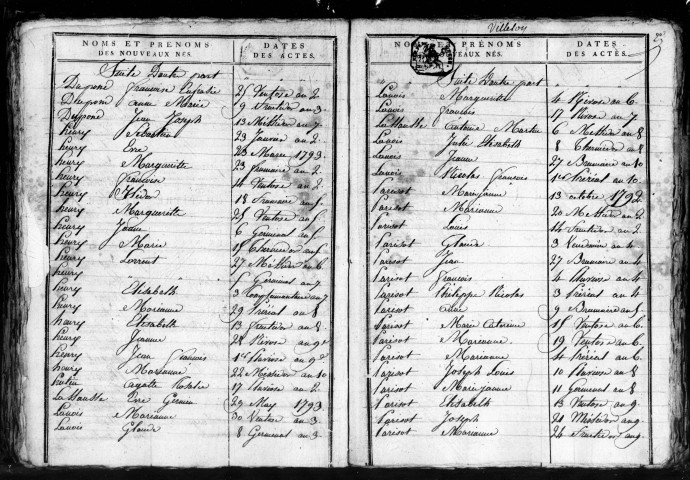 NOMS ET PRÉNOMS
DES NOUVEAUX NÉS.
DATES
DES ACTES.
Suite Dautre part
Dupond Francoise Eufrasie 25 Ventose an 2.
Dupond anne Marie 9 an 3.
Dupond Jean Joseph 13 Messidor an 7.
henry Sebastien 23 Janvier an 2.
henry Eve 23 Mars 1793.
henry Marguerite 23 frimaire an 2.
henry francoise 14 Ventose an 2.
henry 18 frimaire an 5.
henry Marguerite 25 Ventose an 5
henry Jeanne 6 Germinal an 5
henry Marie 15 Thermidor an 5
henry Lorrent 27 Messidor an 6
henry " " 5 Germinal an 7
henry Elisabeth 3 Complementaire an 7
henry Marianne 29 Prérial an 8
henry Elisabeth 13 fructidor an 8
henry Jeanne 28 Nivose an 9
henry Jean francois 1er Nivose an 9
henry Marianne 22 Messidor an 10
Cayatte Rosalie 17 Nivose an 2.
La Dausse Eve 29 May 1793
Lanois Marianne 30 Ventose an 3.
Lanois Glaude 8 Germinal an 3.
Villeloy
23
NOMS ET PRÉNOMS
DES NOUVEAUX NÉS.
DATES
DES ACTES.
Suite Dautre part
Lanois Marguerite 4 Nivose an 6.
Lanois francois 17 Nivose an 7
Antoine Martin 6 Messidor an 8
Lanois Julie Elisabeth 8 Thermidor an 8
Lanois Jeanne 27 Brumaire an 10
Lanois Nicolas francois 1er Prérial an 10.
Parisot Marie jeanne 13 octobre 1792
Parisot Marianne 20 Messidor an 2.
Parisot Louis 14 fructidor an 2.
Parisot Glaude 3 Vendemier an 4.
Parisot Jean 27 Brumaire an 4
Parisot francois 4 Nivose an 4
Parisot Philippe Nicolas 3 Prérial an 4
Parisot anne 9 Brumaire an 5
Parisot Marie Caterinne 15 Ventose an 6.
Parisot Marianne 19 Ventose an 6.
Parisot Marianne 4 Prérial an 6.
Parisot Joseph Louis 10 Nivose an 8
Parisot Marie jeanne 11 Germinal an 8
Parisot Elisabeth 13 Ventose an 9.
Parisot Joseph 21 Messidor an 9
Parisot Marianne 24 fructidor an 9.